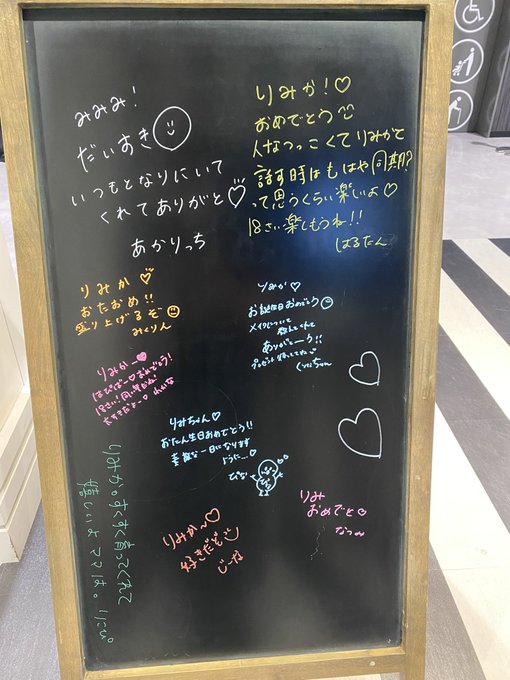 みみみ!
だいすき
いつもとなりにいて
くれてありがと♡
あかりっち
りみか!♡
おめでとう
人なつっこくてりみかと
話す時はもはや同期?
って思うくらい楽しいよ♡
18さい楽しもうね!!
はるたん
りみか♡
おたおめ!!
盛り上げるぞ
みくりん
りみか♡
お誕生日おめでとう
メイクについて
教えてくれて
ありがとーう!!
りみかー♥
はぴばー♡おめでとう!
大すきだよー♡
りみちゃん♡
おたん生日おめでとう!!
素敵な一日になります
ように…♡
ぴな
りみ
おめでと♡
なつ
りみか〜♡
好きだぞ
じーな
りみか。すくすく育ってくれて
嬉しいよママは。